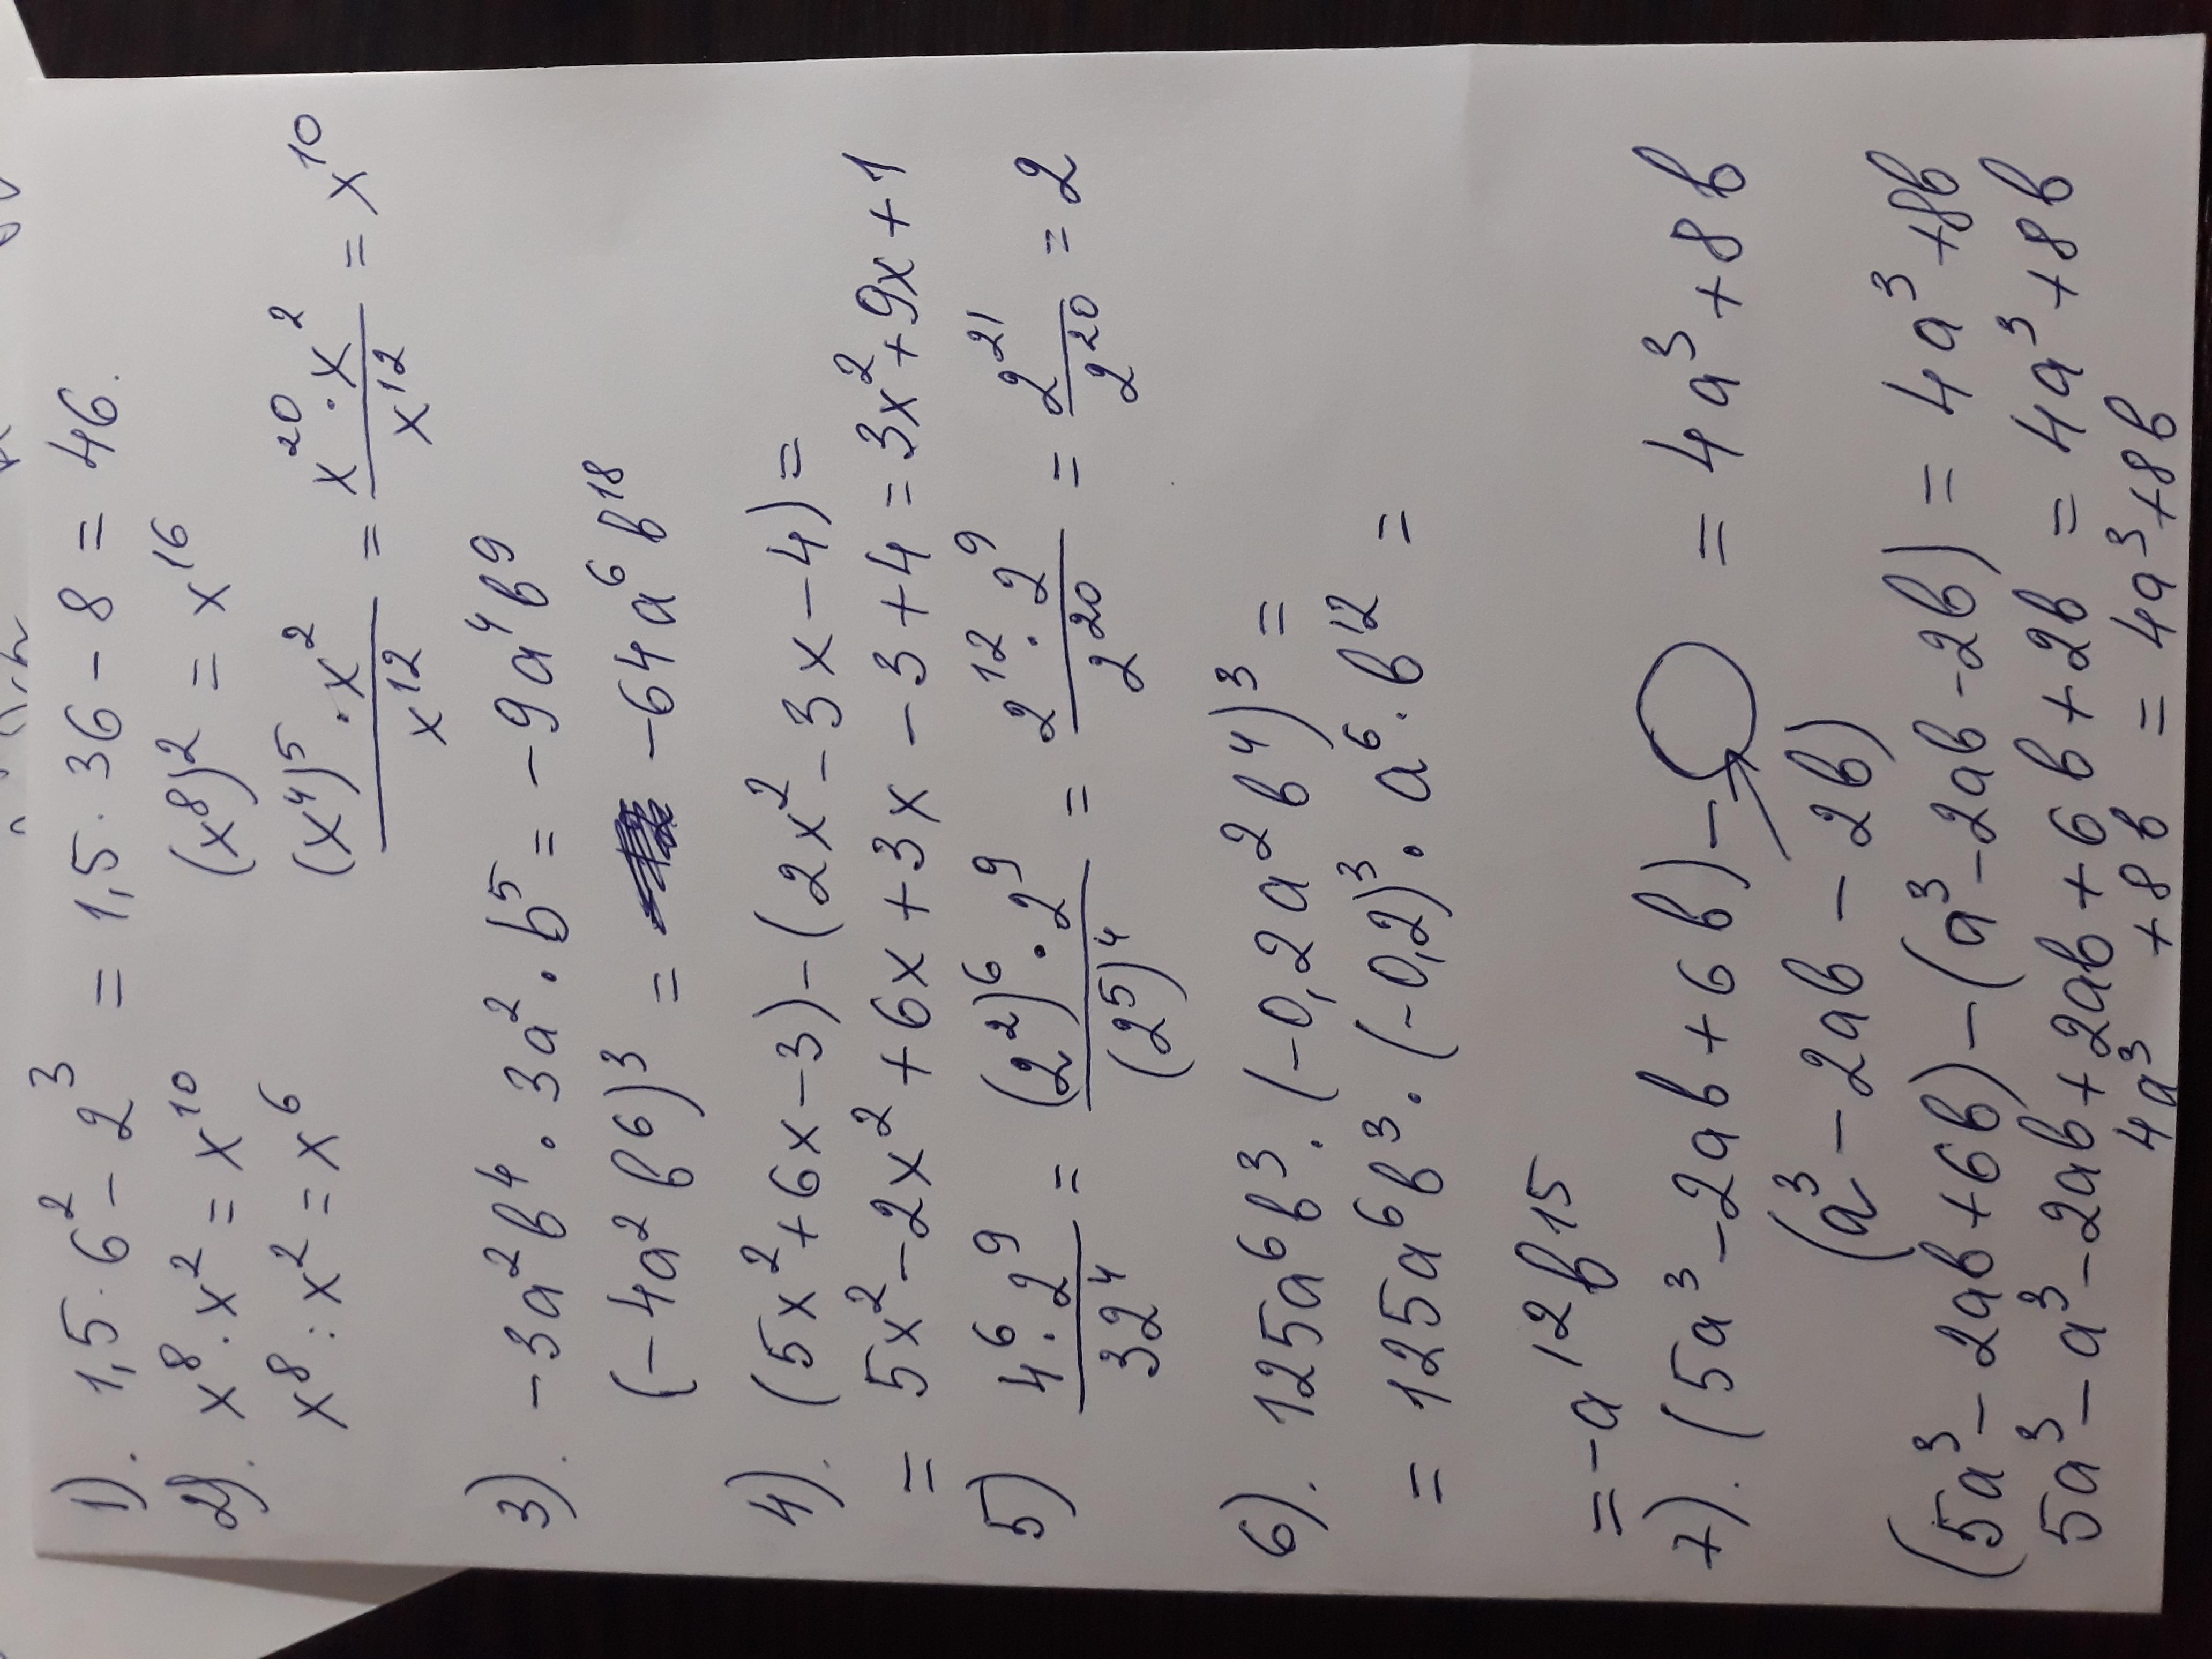 1). 1,5 · 6² - 2³ = 1,5 · 36 - 8 = 46.
2). x⁸ · x² = x¹⁰ (x⁸)² = x¹⁶
x⁸ : x² = x⁶ (x⁴)⁵ · x² / x¹² = x²⁰ · x² / x¹² = x¹⁰
3). -3a²b⁴ · 3a² · b⁵ = -9a⁴b⁹
(-4a²b⁶)³ = -64a⁶b¹⁸
4). (5x² + 6x - 3) - (2x² - 3x - 4) =
= 5x² - 2x² + 6x + 3x - 3 + 4 = 3x² + 9x + 1
5) 4⁶ · 2⁹ / 32⁴ = (2²)⁶ · 2⁹ / (2⁵)⁴ = 2¹² · 2⁹ / 2²⁰ = 2²¹ / 2²⁰ = 2
6). 125a⁶b³ · (-0,2a²b⁴)³ =
= 125a⁶b³ · (-0,2)³ · a⁶ · b¹² =
= -a¹²b¹⁵
7). (5a³ - 2ab + 6b) - = 4a³ + 8b
(a³ - 2ab - 2b)
(5a³ - 2ab + 6b) - (a³ - 2ab - 2b) = 4a³ + 8b
5a³ - a³ - 2ab + 2ab + 6b + 2b = 4a³ + 8b
4a³ + 8b = 4a³ + 8b